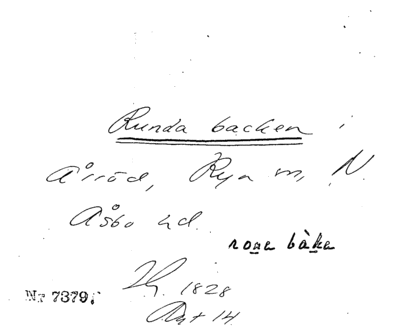 Runda backen
Årröd, Rya sn, N.
Åsbo hd.
roṉa bàḵa
Nr 7379.
1828
Akt 14